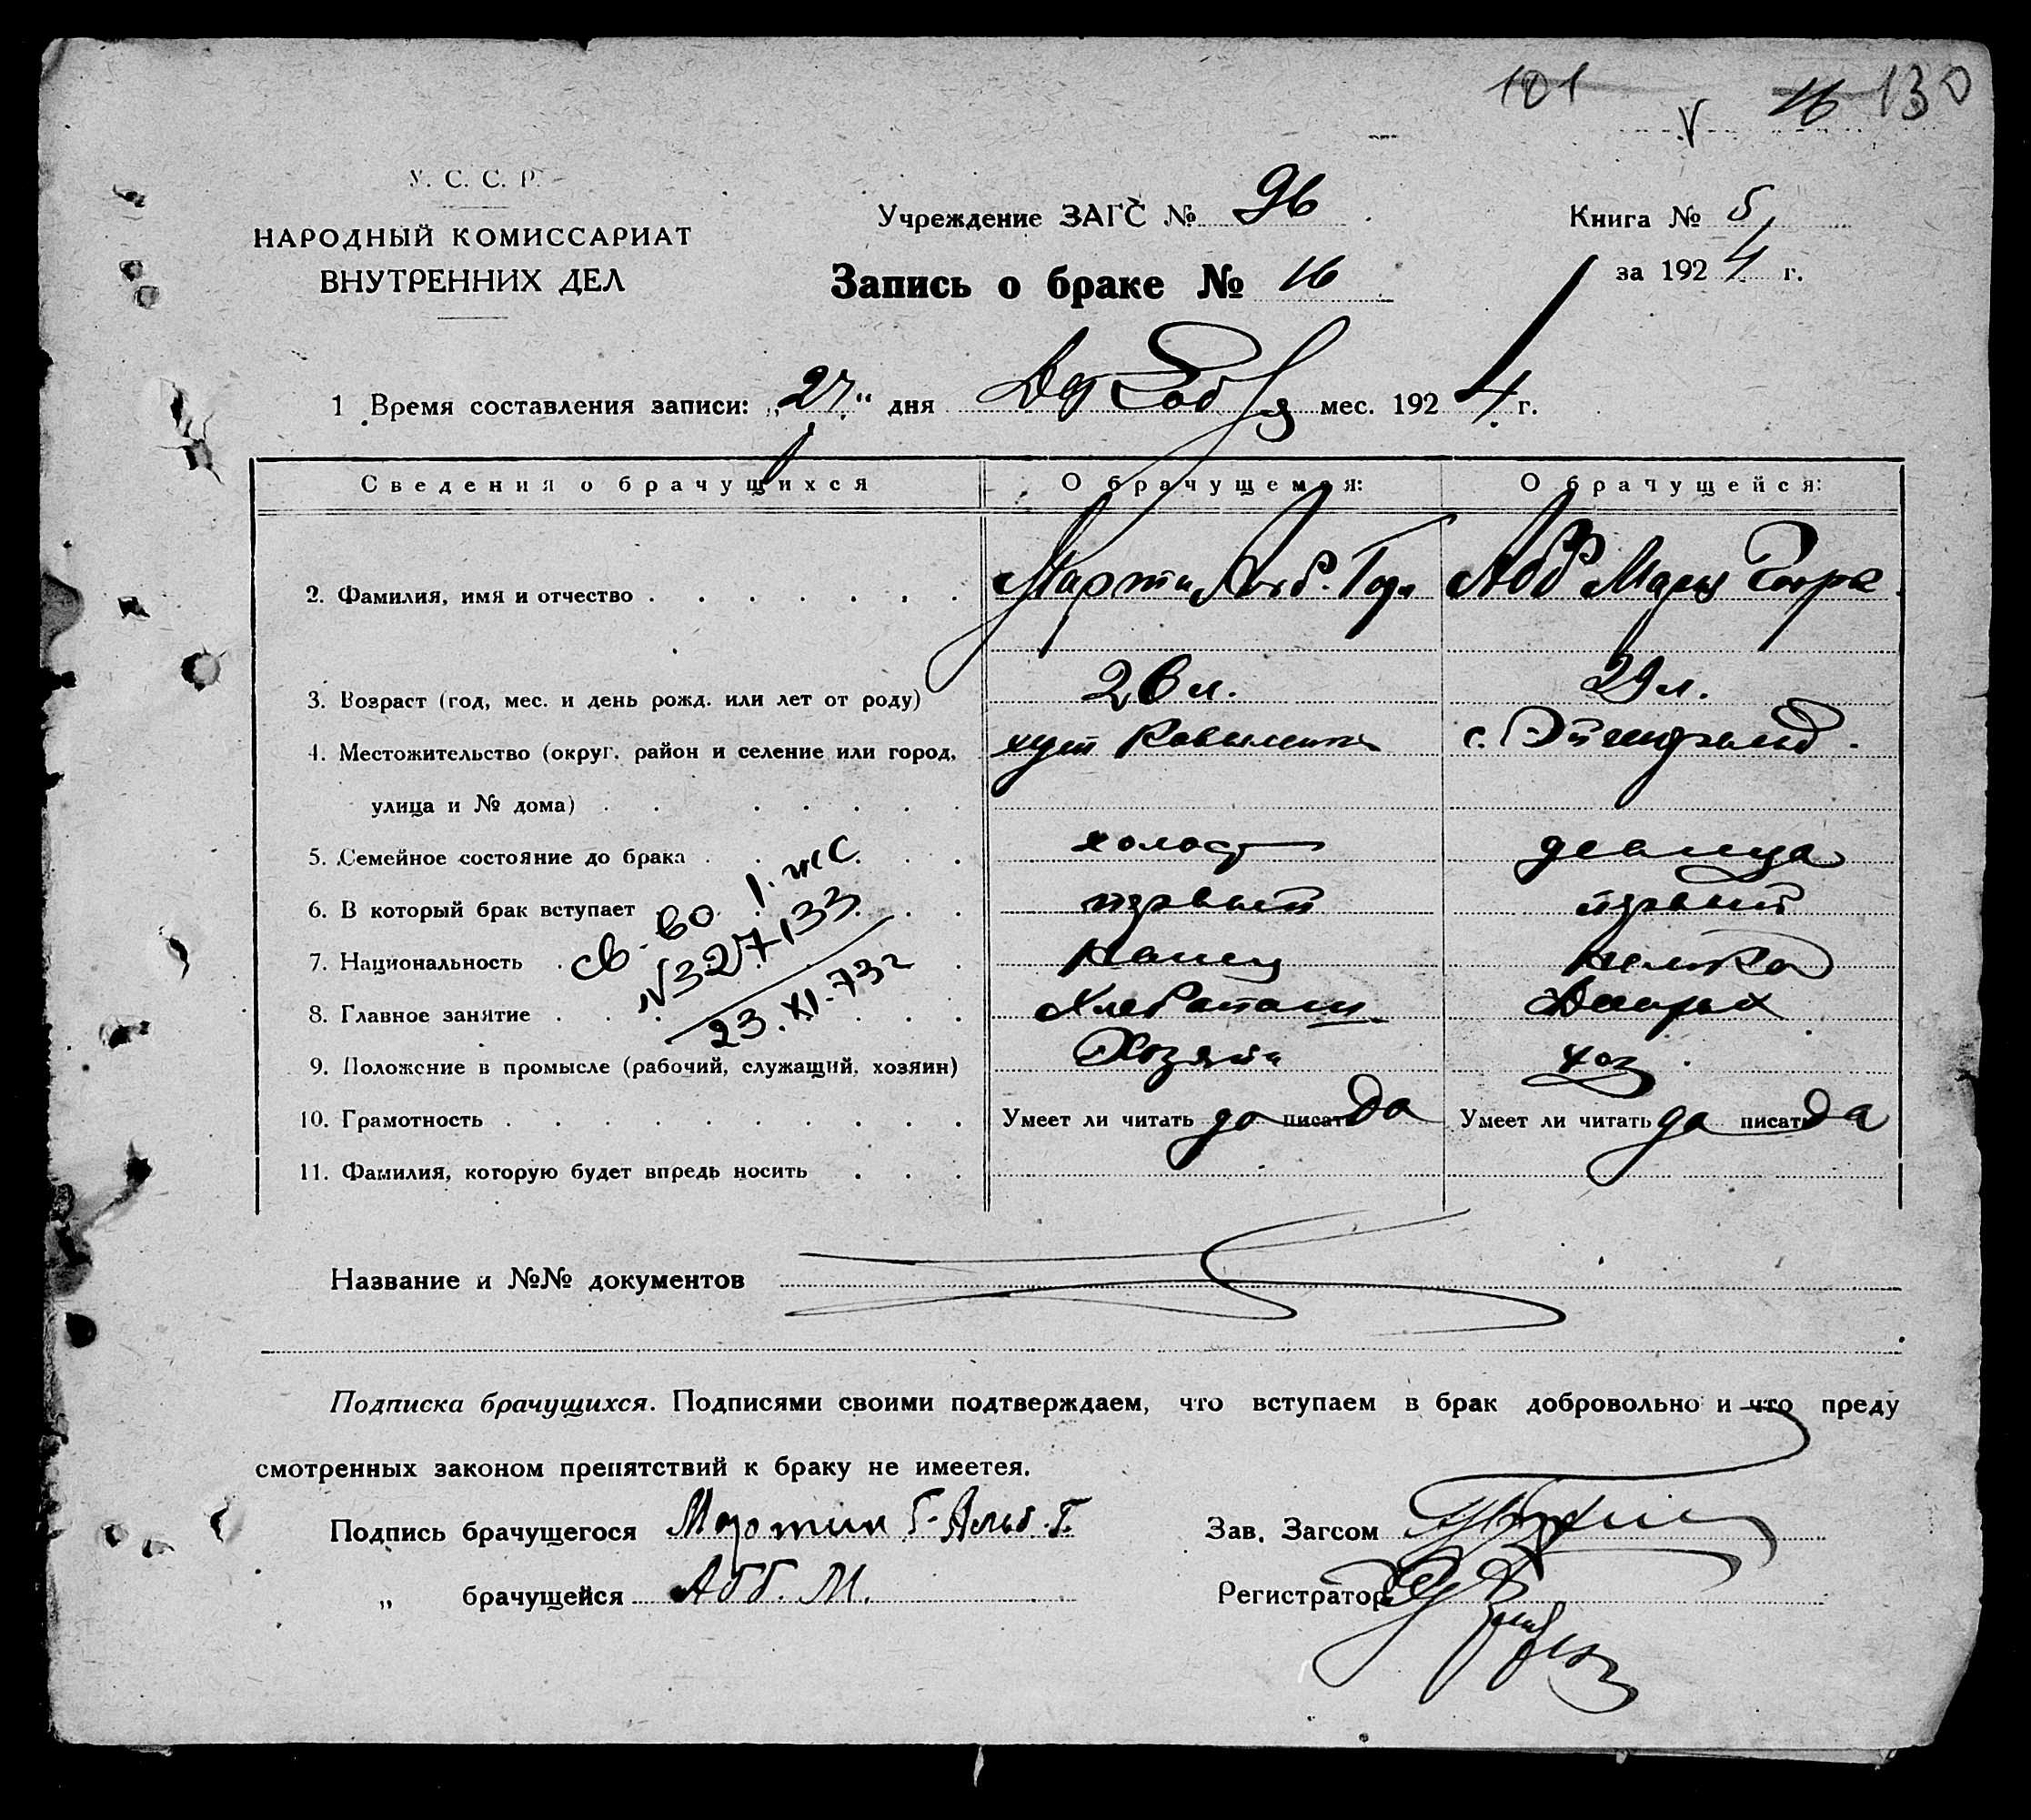 101 16 130
У. С. С. Р.
НАРОДНЫЙ КОМИССАРИАТ
ВНУТРЕННИХ ДЕЛ
Учреждение ЗАГС № 96
Книга № 5
за 1924 г.
Запись о браке № 16
1 Время составления записи: „27“ дня мес. 1924 г.
Сведения о брачущихся О брачущемся: О брачущейся:
2. Фамилия, имя и отчество Мартин Альб. Абб Мария
3. Возраст (год, мес. и день рожд. или лет от роду) 26 л. 29 л.
4. Местожительство (округ, район и селение или город, хут с.
улица и № дома)
5. Семейное состояние до брака холост девица
6. В который брак вступает первый первый
7. Национальность Немец Немка
8. Главное занятие Хлебопаш.
9. Положение в промысле (рабочий, служащий, хозяин) Хозяин хоз
10. Грамотность Умеет ли читать да писать да Умеет ли читать да писать да
11. Фамилия, которую будет впредь носить
св-во I-ЖС
№ 327133
23.XI-73г
Название и №№ документов
Подписка брачущихся. Подписями своими подтверждаем, что вступаем в брак добровольно и что преду
смотренных законом препятствий к браку не имеется.
Подпись брачущегося Мартин Г. Альб. Г. Зав. Загсом
„ брачущейся Абб. М. Регистратор